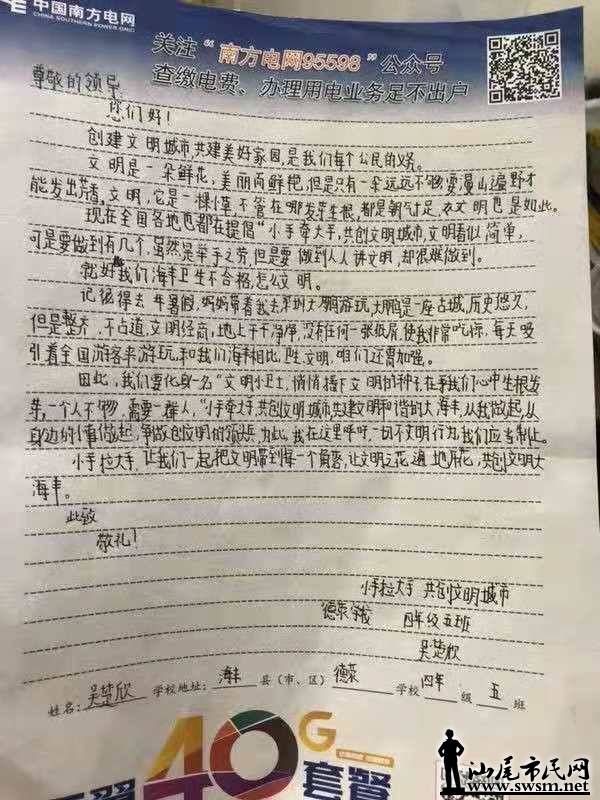 中国南方电网
CHINA SOUTHERN POWER GRID
关注“南方电网95598”公众号
查缴电费、办理用电业务足不出户
尊敬的领导
您们好!
创建文明城市,共建美好家园,是我们每个公民的义务。
文明是一朵鲜花,美丽而鲜艳,但是只有一朵远远不够,要漫山遍野才
能发出芳香。文明,它是一棵小草,不管在哪发芽生根,都是朝气十足,衣文明也是如此。
现在全国各地也都在提倡“小手牵大手,共创文明城市,文明看似简单,
可是要做到有几个,虽然是举手之劳,但是要做到人人讲文明,却很难做到。
就好我们海丰卫生不合格,怎么文明。
记得去年暑假,妈妈带着我去深圳大鹏游玩,大鹏是一座古城,历史悠久,
但是整齐,不占道,文明经商,地上干干净净,没有任何一张纸屑,使我非常吃惊,每天吸
引着全国游客来游玩,和我们海丰相比,卫生文明,咱们还需加强。
因此,我们要化身一名“文明小卫士,悄悄播下文明的种子在我们心中生根发
芽,一个人不够,需要一群人,“小手牵大手,共创文明城市,共建文明和谐的大海丰,从我做起,从
身边的小事做起,争做创文明的领头兵。为此,我在这里呼吁,一切不文明行为,我们应当制止。
小手拉大手,让我们一起把文明带到每一个角落,让文明之花遍地开花,共创文明大
海丰。
此致
敬礼!
小手拉大手 共创文明城市
德荣学校 四年级五班
吴楚欣
姓名:吴楚欣 学校地址:海丰县(市、区)德荣学校四年级五班
40G套餐
汕尾市民网
www.swsm.net